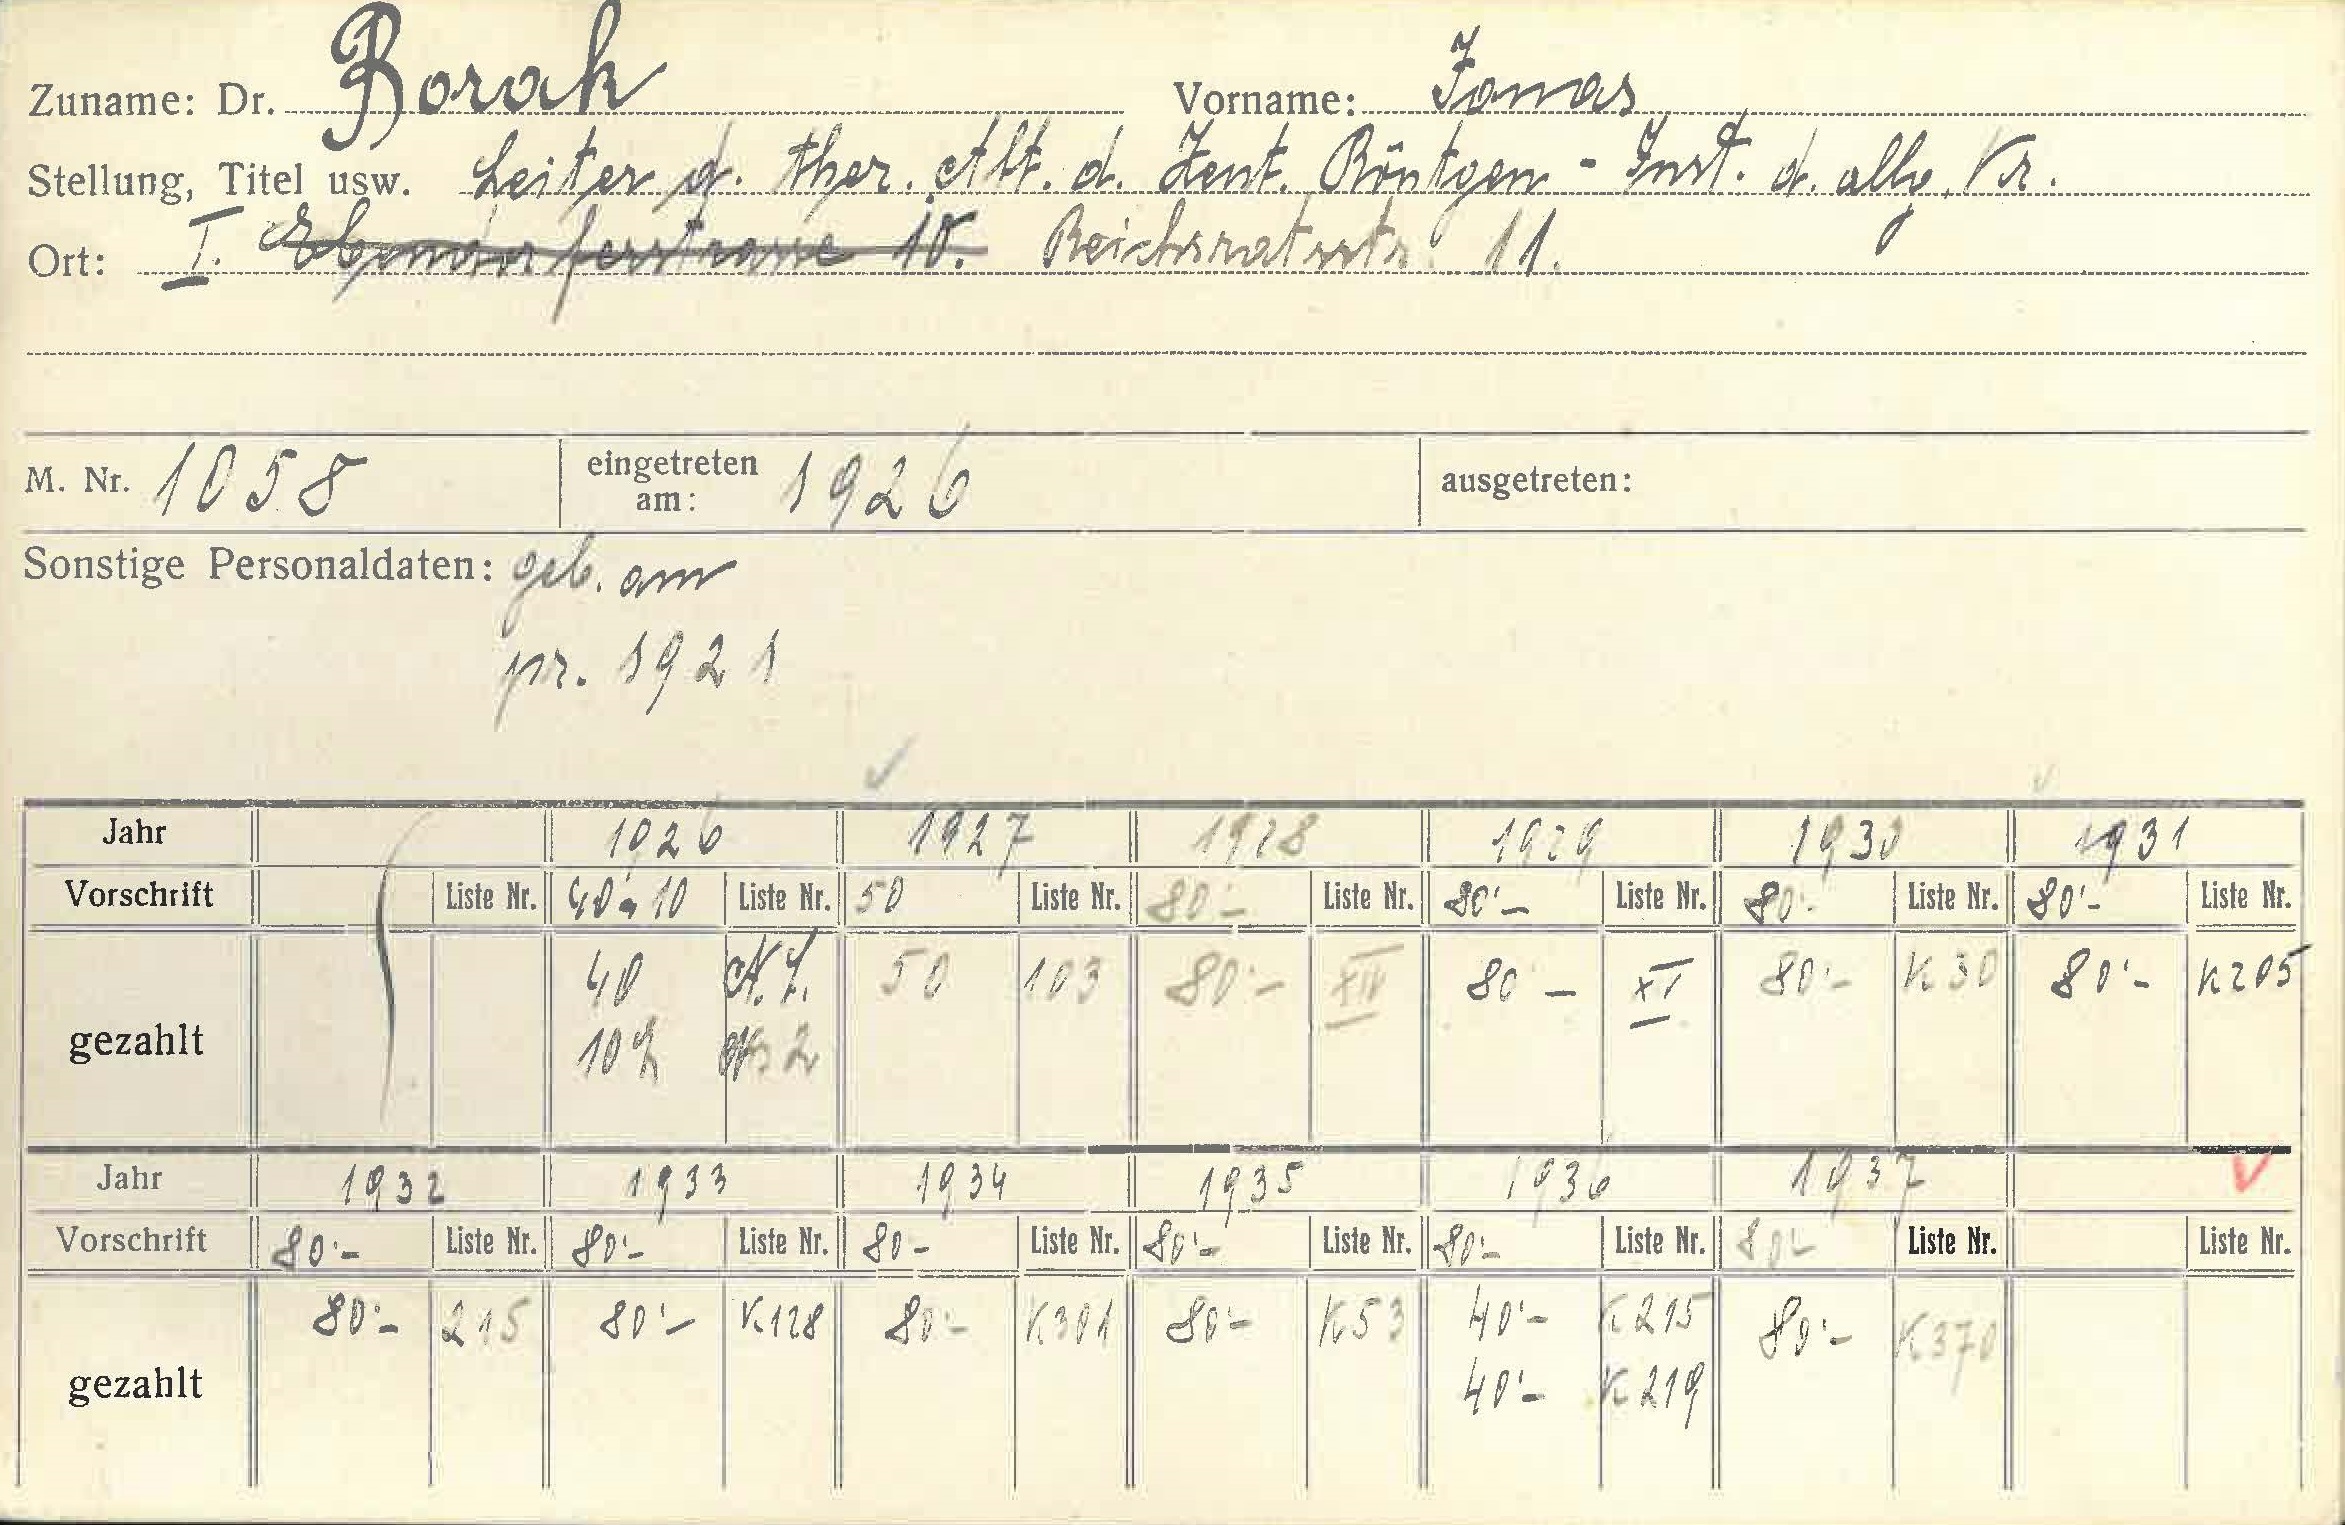 Zuname: Dr. Borak Vorname: Jonas
Stellung, Titel usw. Leiter d. ther. Abt. d. Zent. Röntgen-Inst. d. allg. Kr.
Ort: I. Ebendorferstrasse 10. Reichsratsstr. 11.
M. Nr. 1058 eingetreten am: 1926 ausgetreten:
Sonstige Personaldaten: geb. am
pr. 1921
Jahr 1926 1927 1928 1929 1930 1931
Vorschrift Liste Nr. 40 10 Liste Nr. 50 Liste Nr. 80'- Liste Nr. 80'- Liste Nr. 80'- Liste Nr. 80'- Liste Nr.
gezahlt 40 50 103 80'- 80- XI 80'- K30 80'- K205
10
Jahr 1932 1933 1934 1935 1936 1937
Vorschrift 80'- Liste Nr. 80'- Liste Nr. 80- Liste Nr. 80'- Liste Nr. 80'- Liste Nr. 80'- Liste Nr. Liste Nr.
gezahlt 80'- 215 80'- K128 80'- K301 80'- K53 40'- K215 80'- K370
40'- K219